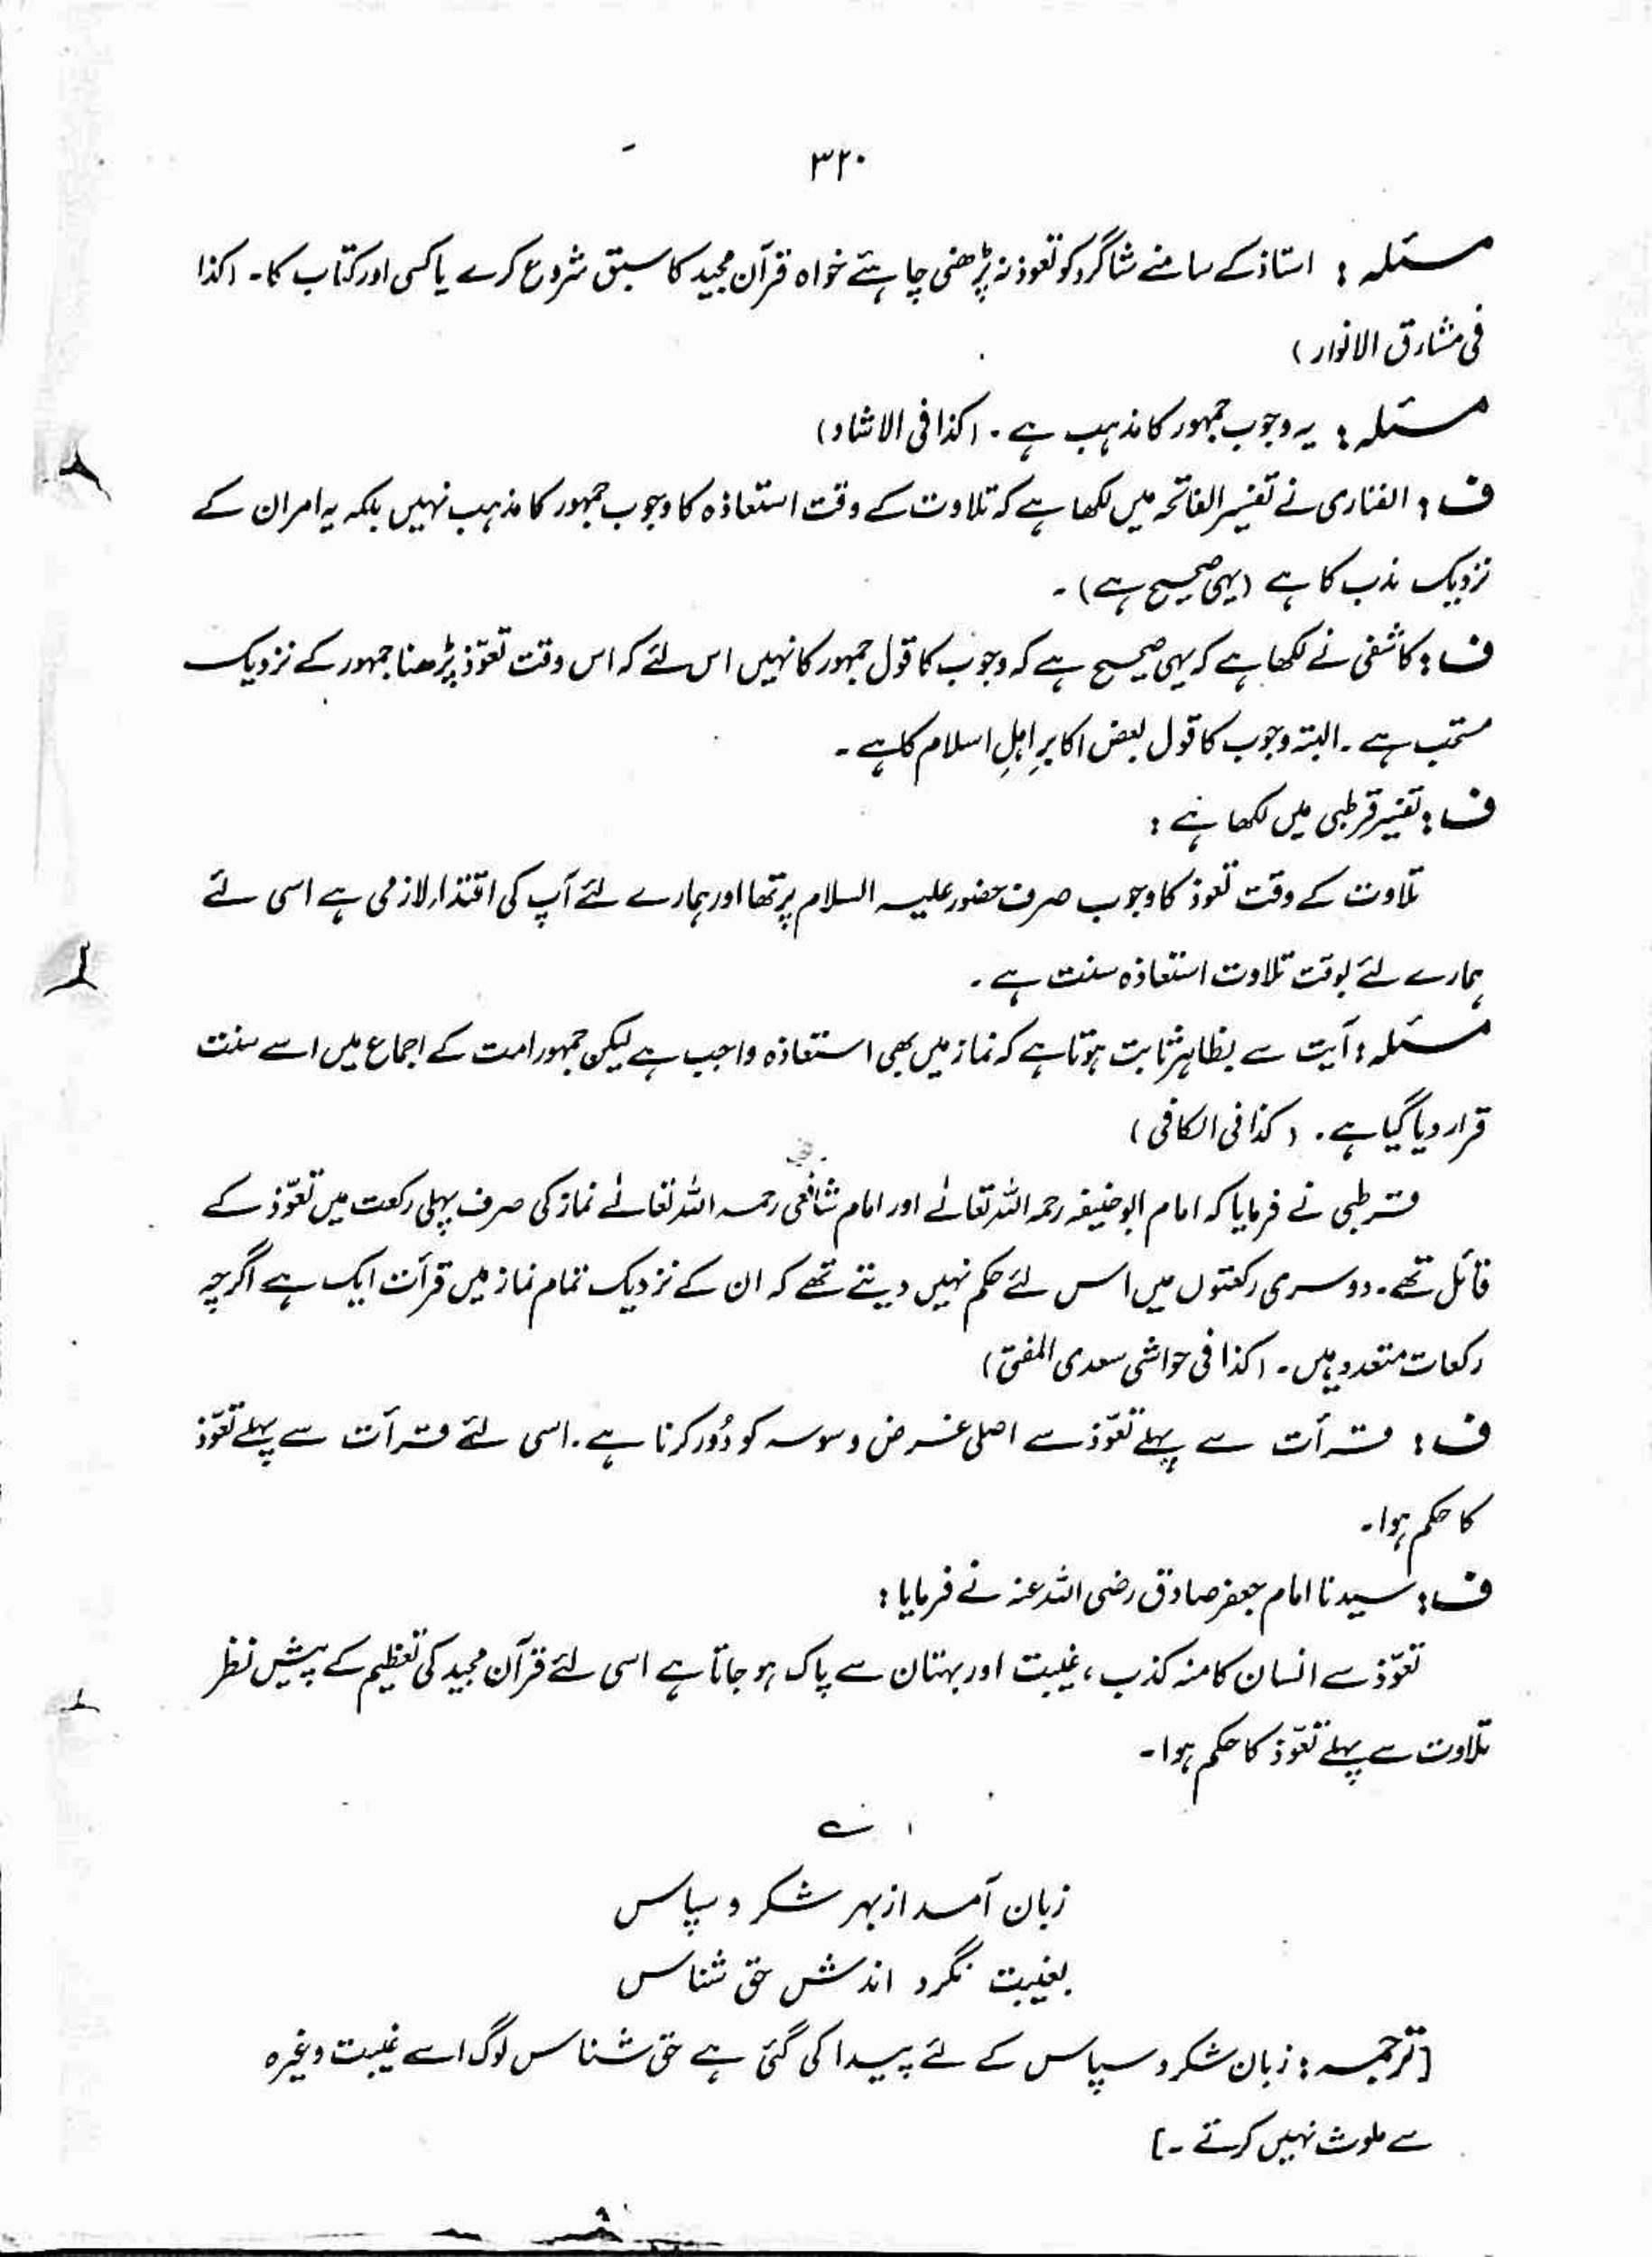 ۳۲۰
مسئلہ : استاذ کے سامنے شاگرد کو تعوذ نہ پڑھنی چاہئے خواہ قرآن مجید کا سبق شروع کرے یا کسی اور کتاب کا۔ (کذا
فی مشارق الانوار)
مسئلہ : یہ وجوب جمہور کا مذہب ہے۔ (کذا فی الاشاد)
ف : الفناری نے تفسیر الفاتحہ میں لکھا ہے کہ تلاوت کے وقت استعاذہ کا وجوب جمہور کا مذہب نہیں بلکہ یہ امر ان کے
نزدیک ندب کا ہے (یہی صحیح ہے)۔
ف : کاشفی نے لکھا ہے کہ یہی صحیح ہے کہ وجوب کا قول جمہور کا نہیں اس لئے کہ اس وقت تعوّذ پڑھنا جمہور کے نزدیک
مستحب ہے۔ البتہ وجوب کا قول بعض اکابرِ اہلِ اسلام کا ہے۔
ف : تفسیر قرطبی میں لکھا ہے :
تلاوت کے وقت تعوذ کا وجوب صرف حضور علیہ السلام پر تھا اور ہمارے لئے آپ کی اقتدا لازمی ہے اسی لئے
ہمارے لئے بوقت تلاوت استعاذہ سنت ہے۔
مسئلہ : آیت سے بظاہر ثابت ہوتا ہے کہ نماز میں بھی استعاذہ واجب ہے لیکن جمہور امت کے اجماع میں اسے سنت
قرار دیا گیا ہے۔ (کذا فی الکافی)
قرطبی نے فرمایا کہ امام ابو حنیفہ رحمہ اللہ تعالےٰ اور امام شافعی رحمہ اللہ تعالےٰ نماز کی صرف پہلی رکعت میں تعوّذ کے
قائل تھے۔ دوسری رکعتوں میں اس لئے حکم نہیں دیتے تھے کہ ان کے نزدیک تمام نماز میں قرآت ایک ہے اگرچہ
رکعات متعدد ہیں۔ (کذا فی حواشی سعدی المفتی)
ف : قرأت سے پہلے تعوّذ سے اصلی غرض وسوسہ کو دُور کرنا ہے۔ اسی لئے قرآت سے پہلے تعوّذ
کا حکم ہوا۔
ف : سیدنا امام جعفر صادق رضی اللہ عنہ نے فرمایا :
تعوّذ سے انسان کا منہ کذب، غیبت اور بہتان سے پاک ہو جاتا ہے اسی لئے قرآن مجید کی تعظیم کے پیش نظر
تلاوت سے پہلے تعوّذ کا حکم ہوا۔
زبان آمد از بہر شکر و سپاس
بغیبت نگرد اندش حق شناس
[ترجمہ : زبان شکر و سپاس کے لئے پیدا کی گئی ہے حق شناس لوگ اسے غیبت وغیرہ
سے ملوث نہیں کرتے۔]